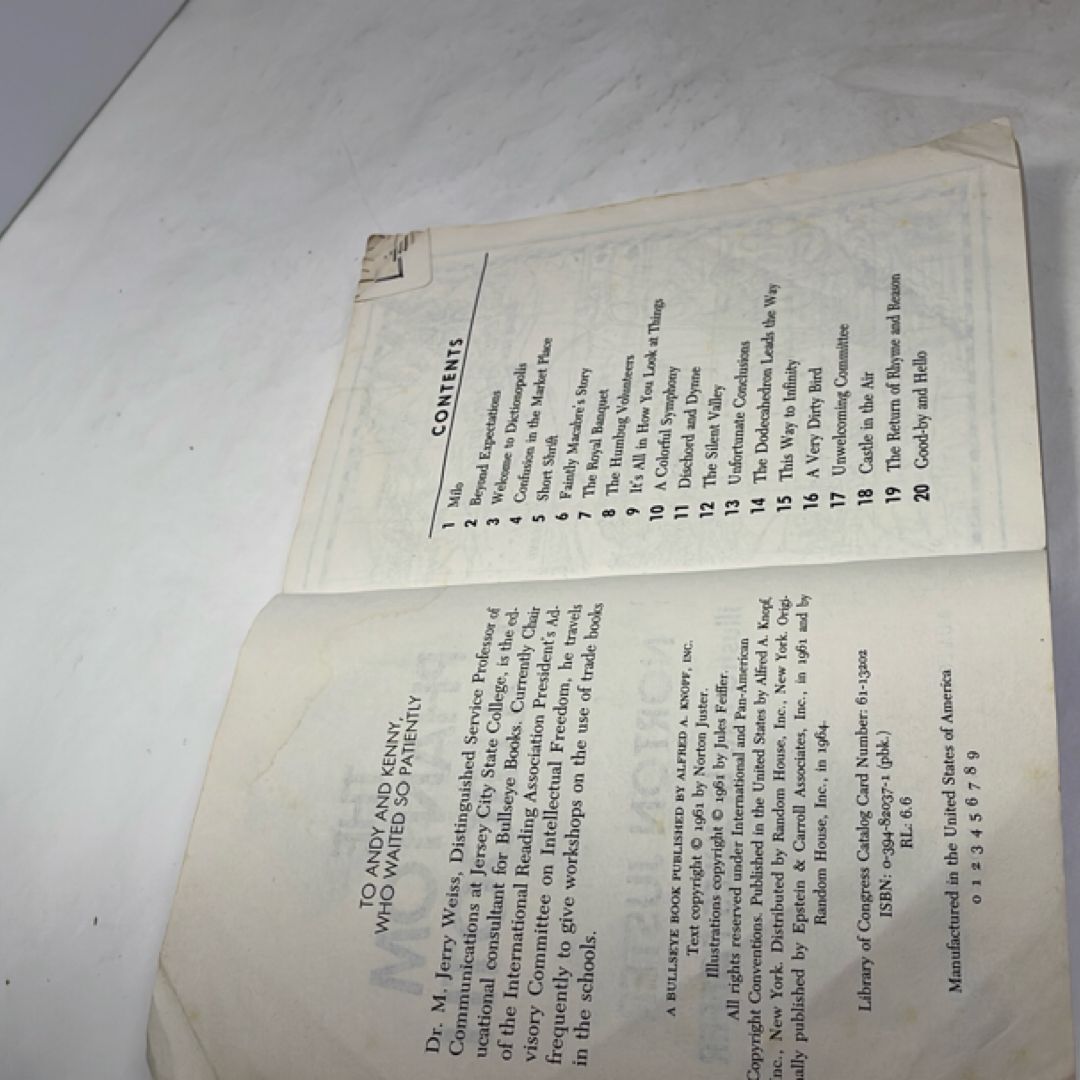 TO ANDY AND KENNY,
WHO WAITED SO PATIENTLY
Dr. M. Jerry Weiss, Distinguished Service Professor of
Communications at Jersey City State College, is the ed-
ucational consultant for Bullseye Books. Currently Chair
of the International Reading Association President's Ad-
visory Committee on Intellectual Freedom, he travels
frequently to give workshops on the use of trade books
in the schools.
A BULLSEYE BOOK PUBLISHED BY ALFRED A. KNOPF, INC.
Text copyright © 1961 by Norton Juster.
Illustrations copyright © 1961 by Jules Feiffer.
All rights reserved under International and Pan-American
Copyright Conventions. Published in the United States by Alfred A. Knopf,
Inc., New York. Distributed by Random House, Inc., New York. Origi-
nally published by Epstein & Carroll Associates, Inc., in 1961 and by
Random House, Inc., in 1964.
Library of Congress Catalog Card Number: 61-13202
ISBN: 0-394-82037-1 (pbk.)
RL: 6.6
Manufactured in the United States of America
0 1 2 3 4 5 6 7 8 9
CONTENTS
1 Milo
2 Beyond Expectations
3 Welcome to Dictionopolis
4 Confusion in the Market Place
5 Short Shrift
6 Faintly Macabre's Story
7 The Royal Banquet
8 The Humbug Volunteers
9 It's All in How You Look at Things
10 A Colorful Symphony
11 Dischord and Dynne
12 The Silent Valley
13 Unfortunate Conclusions
14 The Dodecahedron Leads the Way
15 This Way to Infinity
16 A Very Dirty Bird
17 Unwelcoming Committee
18 Castle in the Air
19 The Return of Rhyme and Reason
20 Good-by and Hello